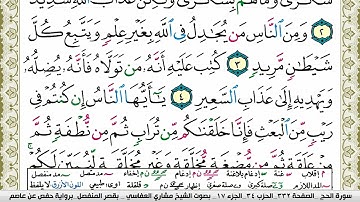 سُكَٰرَىٰ وَمَا هُم بِسُكَٰرَىٰ وَلَٰكِنَّ عَذَابَ ٱللَّهِ شَدِيدٞ
٢ وَمِنَ ٱلنَّاسِ مَن يُجَٰدِلُ فِي ٱللَّهِ بِغَيۡرِ عِلۡمٖ وَيَتَّبِعُ كُلَّ
شَيۡطَٰنٖ مَّرِيدٖ ٣ كُتِبَ عَلَيۡهِ أَنَّهُۥ مَن تَوَلَّاهُ فَأَنَّهُۥ يُضِلُّهُۥ
وَيَهۡدِيهِ إِلَىٰ عَذَابِ ٱلسَّعِيرِ ٤ يَٰٓأَيُّهَا ٱلنَّاسُ إِن كُنتُمۡ فِي
رَيۡبٖ مِّنَ ٱلۡبَعۡثِ فَإِنَّا خَلَقۡنَٰكُم مِّن تُرَابٖ ثُمَّ مِن نُّطۡفَةٖ ثُمَّ
مِن مُّضۡغَةٖ مُّخَلَّقَةٖ وَغَيۡرِ مُخَلَّقَةٖ لِّنُبَيِّنَ لَكُمۡۚ
سورة الحج - الصفحة ٣٣٢ - الحزب ٣٤ - الجزء ١٧ - بصوت الشيخ مشاري العفاسي - بقصر المنفصل - برواية حفص عن عاصم